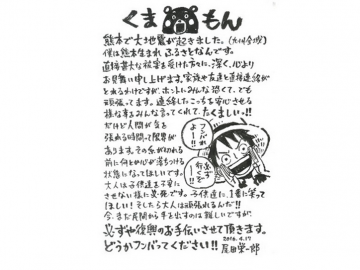 くま もん
熊本で大地震が起きました。(九州全域)
僕は熊本生まれ、ふるさとなんです。
直接甚大な被害を受けた方々に、深く、心より
お見舞い申し上げます。家族や友達と直接連絡が
とれるわけですが、ホントにみんな恐くて、でも
頑張ってます。連絡したこっちを安心させる
様な事をみんな言ってくれて、たくましいっ!!
だけど人間が気を
張れる時間って限界が
あります。その糸が切れる
前に何とか心が落ちつける
状態になってほしいです。
大人は子供達を不安に
させない様に必死です。子供達に、1番に笑って
ほしい!そしたら大人は頑張れるんだ!!
今、まだ民間から手を出すのは難しいですが、
必ずや復興のお手伝いさせて頂きます。
どうかフンバってください!!
2016.4.17
尾田栄一郎
フンバれよー!!
必ず行くぞー!!